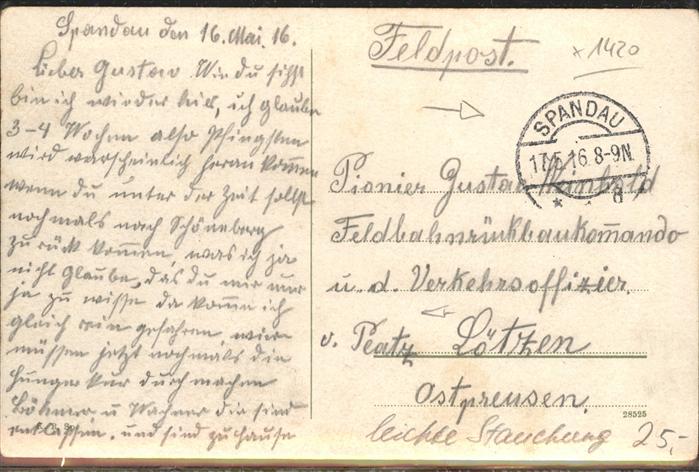 Spandau den 16. Mai. 16.
Lieber Gustav. Wie du sihst
bin ich wieder hier, ich glaube
3-4 Wochen also Pfingsten
wird warscheinlich heran kommen
wenn du unter der Zeit sollst
nochmals nach Schöneberg
zurück kommen, was ich ja
nicht Glaube, das du mir nur
ja zu wisse da komme ich
gleich rein gefahren, wir
müssen jetzt nochmals die
Hunger kur durch machen
Böhmer u Wagner die sind
entlassen. und sind zu hause
Feldpost.
x 1420
SPANDAU
17.5.16.8-9N.
* d
Pionier Gustav
Feldbahnrückbaukommando
u. d. Verkehrsoffizier.
v. Peatz Lötzen
Ostpreusen.
28525
leichte Stauchung 25,-